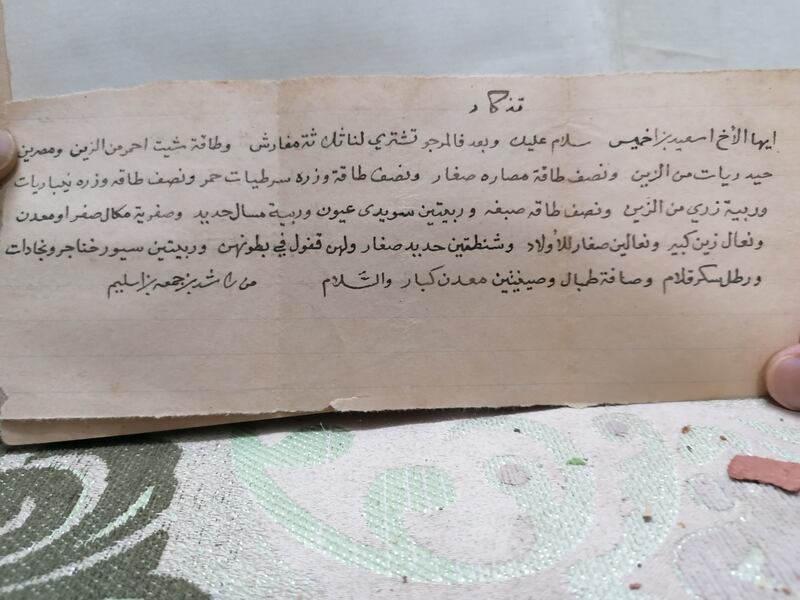 تذكار
ايها الأخ اسعيد بن اخميس سلام عليك وبعد فالمرجو تشتري لنا ثلاثة مفارش وطاقة شيت احمر من الزين ومصرين
حيدريات من الزين ونصف طاقة مصاره صغار ونصف طاقة وزره سرطيات حمر ونصف طاقه وزره نجباريات
وربية زري من الزين ونصف طاقه صبغه وربيتين سويدى عيون وربية مسال حديد وصفرية مكال صفر او معدن
ونعال زين كبير ونعالين صغار للأولاد وشنطتين حديد صغار ولهن قفول في بطونهن وربيتين سيور خناجر ونجادات
ورطل سكر قلام وصافة طبال وصيغيتين معدن كبار والسَّلام من راشد بن جمعه بن اسليم